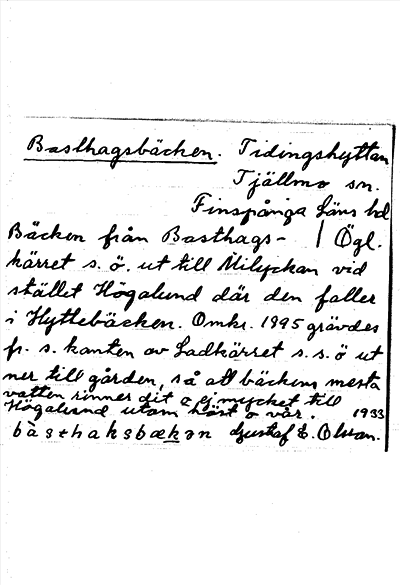 Basthagsbäcken. Tidingshyttan
Tjällmo sn.
Finspånga läns hd
Bäcken från Basthags- / Ögl.
kärret s. ö. ut till Milyckan vid
stället Högalund där den faller
i Hyttebäcken. Omkr. 1895 grävdes
fr. s. kanten av Ladkärret s. s. ö ut
ner till gården, så att bäckens mesta
vatten rinner dit & ej mycket till
Högalund utom höst o vår. 1933
Gustaf E. Olsson.